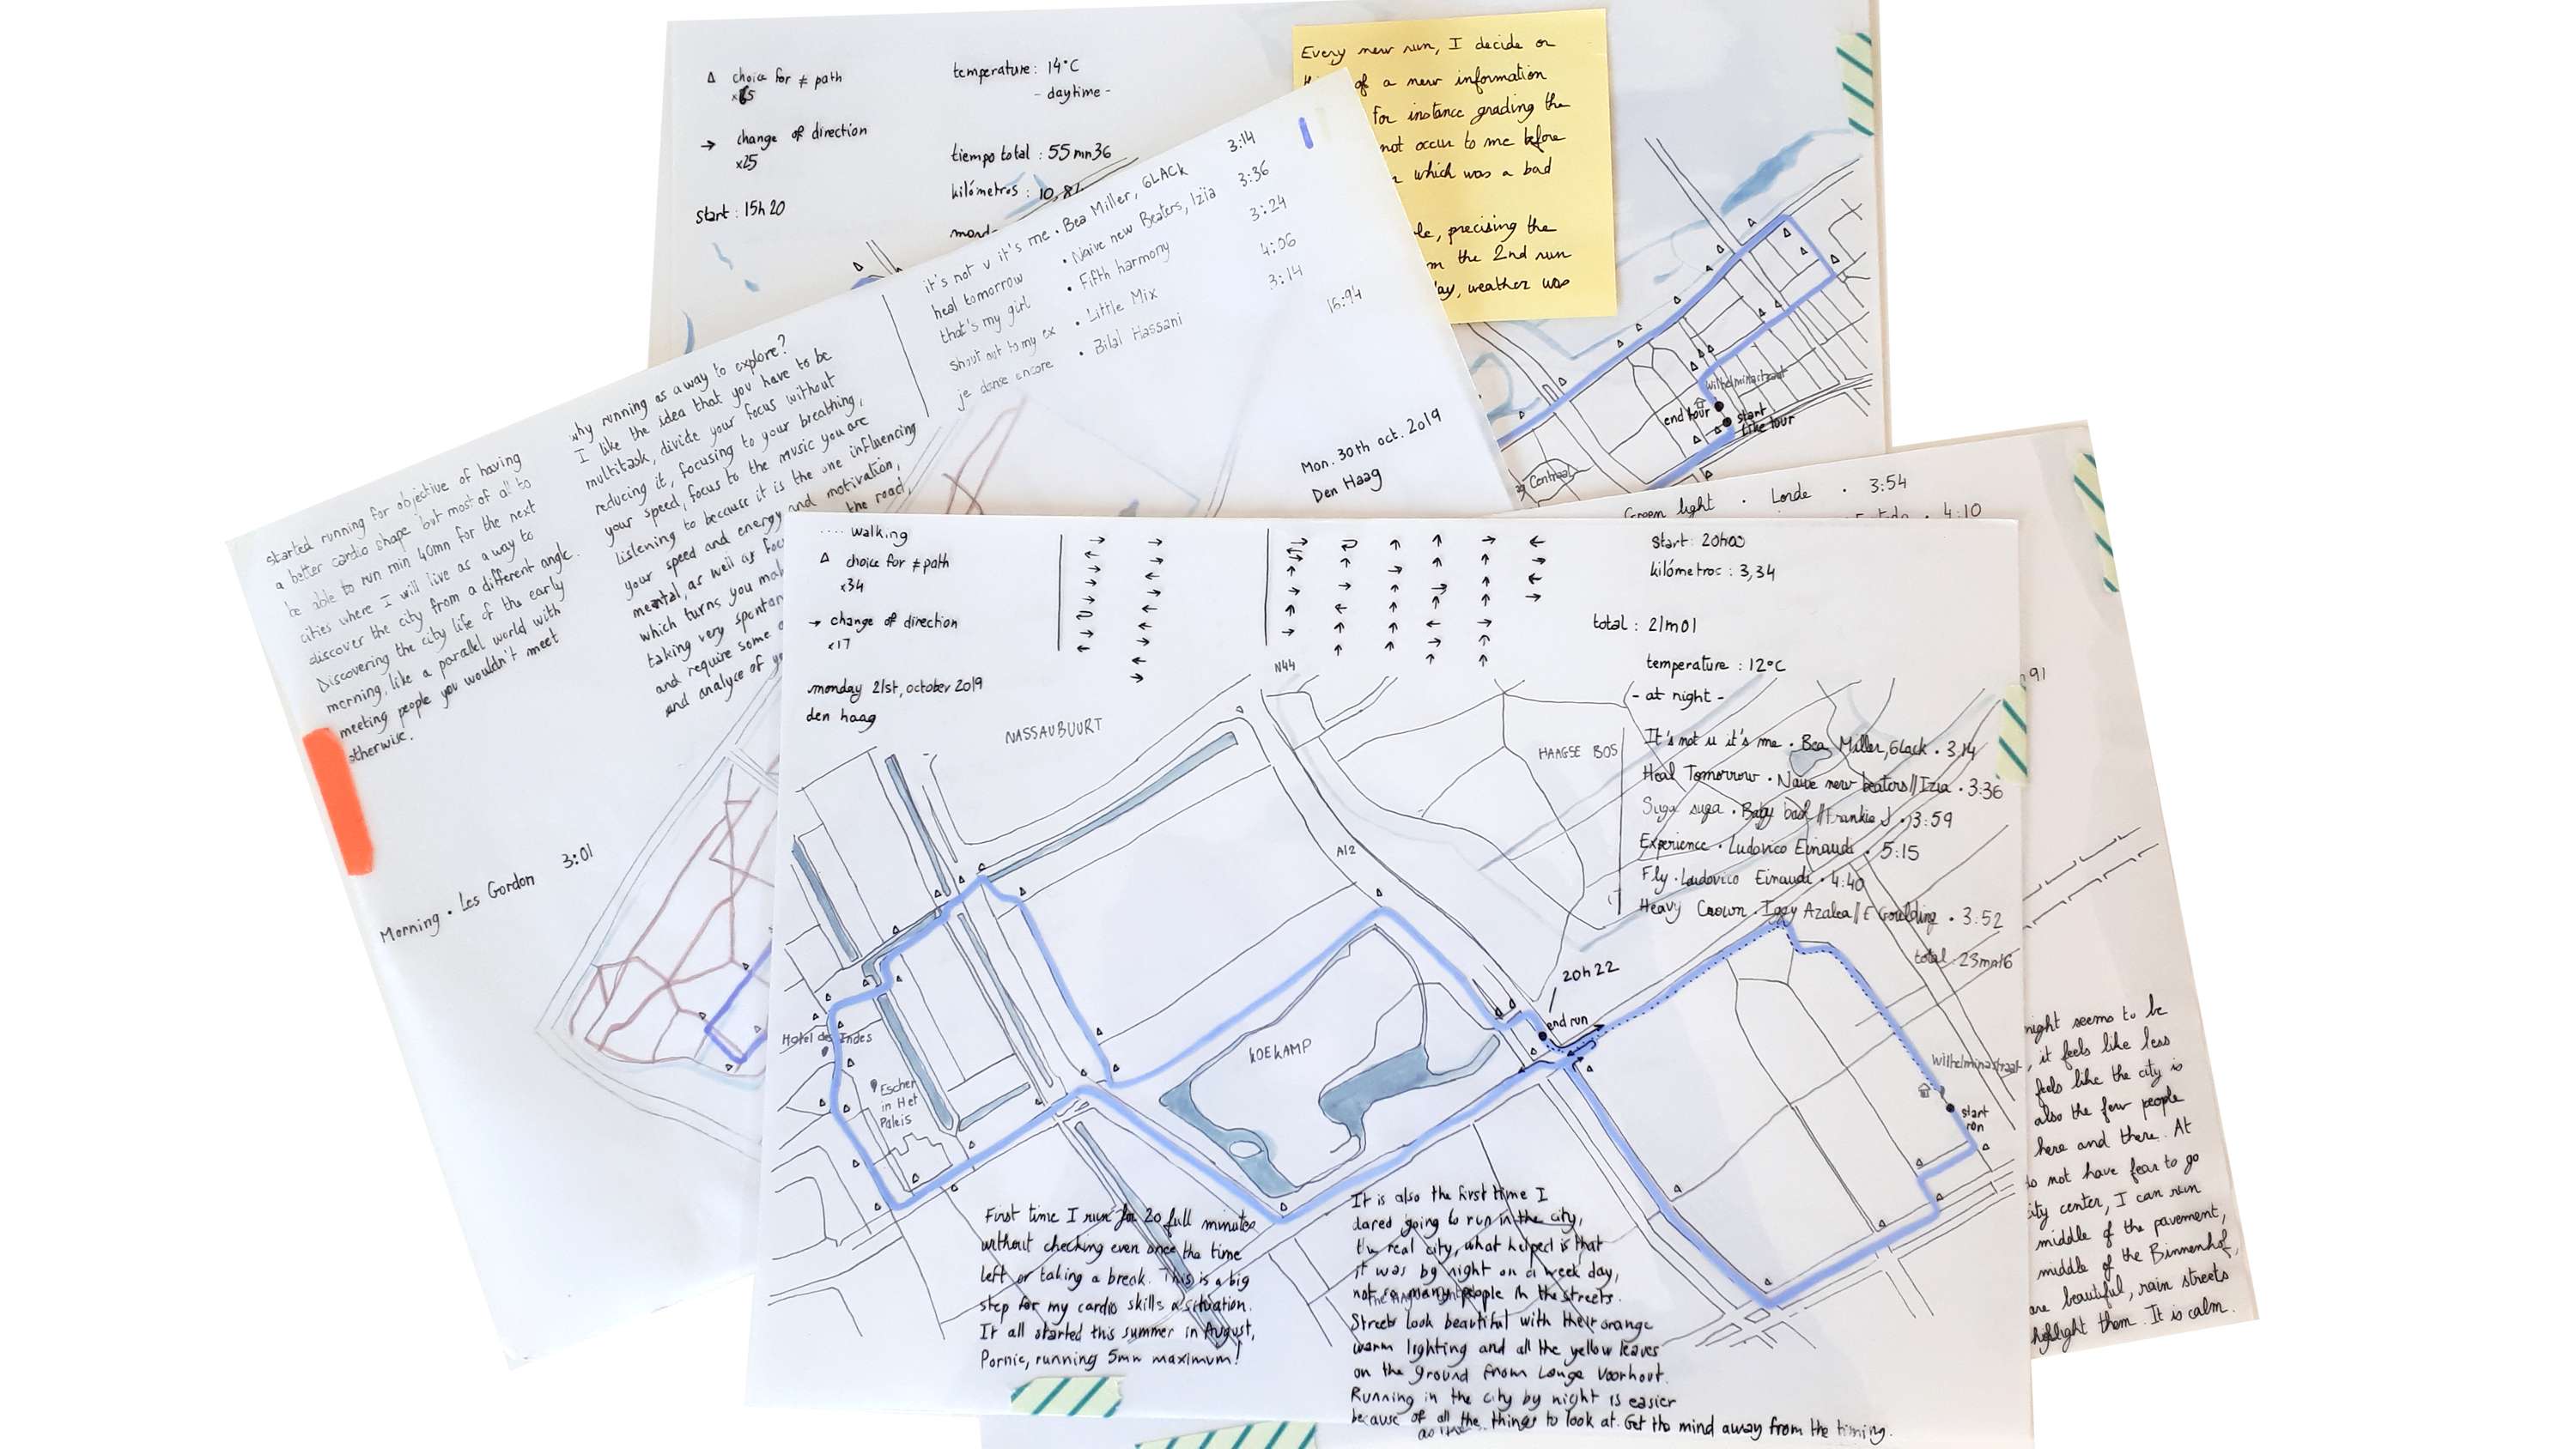 Δ choice for ≠ path
x65
→ change of direction
x25
start : 15h20
temperature : 14°C
- daytime -
tiempo total : 55mn36
kilómetros : 10,82
Every new run, I decide or
of a new information
For instance grading the
not occur to me before
which was a bad
le, precising the
m the 2nd run
ay, weather was
wilhelminastraat
end tour
start
bike tour
Centraal
it's not u it's me • Bea Miller, 6LACK 3:14
heal tomorrow • Naive new Beaters, Izia 3:36
that's my girl • Fifth harmony 3:24
shout out to my ex • Little Mix 4:06
je danse encore • Bilal Hassani 3:14
15:94
Mon. 30th oct. 2019
Den Haag
why running as a way to explore?
I like the idea that you have to be
multitask, divide your focus without
reducing it, focusing to your breathing,
your speed, focus to the music you are
listening to because it is the one influencing
your speed and energy and motivation,
mental, as well as foc the road,
which turns you mak
taking very spontan
and require some
and analyse of y
started running for objective of having
a better cardio shape but most of all to
be able to run min 40mn for the next
cities where I will live as a way to
discover the city from a different angle.
Discovering the city life of the early
morning, like a parallel world with
meeting people you wouldn't meet
otherwise.
Morning • Les Gordon 3:01
Green light • Lorde • 3:54
• 4:10
91
.... walking
Δ choice for ≠ path
x34
→ change of direction
x17
monday 21st, october 2019
den haag
start : 20h00
kilómetros : 3,34
total : 21m01
temperature : 12°C
- at night -
It's not u it's me • Bea Miller, 6lack • 3,14
Heal Tomorrow • Naive new beaters // Izia • 3:36
Suga suga • Baby bash // Frankie J • 3:59
Experience • Ludovico Einaudi • 5:15
Fly • Ludovico Einaudi • 4:40
Heavy Crown • Iggy Azalea // E Goulding • 3:52
total : 23mn16
N44
NASSAUBUURT
HAAGSE BOS
A12
20h22
end run
KOEKAMP
Hotel des Indes
Escher
in Het
Paleis
wilhelminastraat
start
run
First time I run for 20 full minutes
without checking even once the time
left or taking a break. This is a big
step for my cardio skills & situation.
It all started this summer in August,
Pornic, running 5mn maximum!
It is also the first time I
dared going to run in the city,
the real city, what helped is that
it was by night on a week day,
not so many people in the streets.
Streets look beautiful with their orange
warm lighting and all the yellow leaves
on the ground from Lange Voorhout.
Running in the city by night is easier
because of all the things to look at. Get the mind away from the timing.
night seems to be
it feels like less
feels like the city is
also the few people
here and there. At
do not have fear to go
city center, I can run
middle of the pavement,
middle of the Binnenhof,
are beautiful, rain streets
highlight them. It is calm.